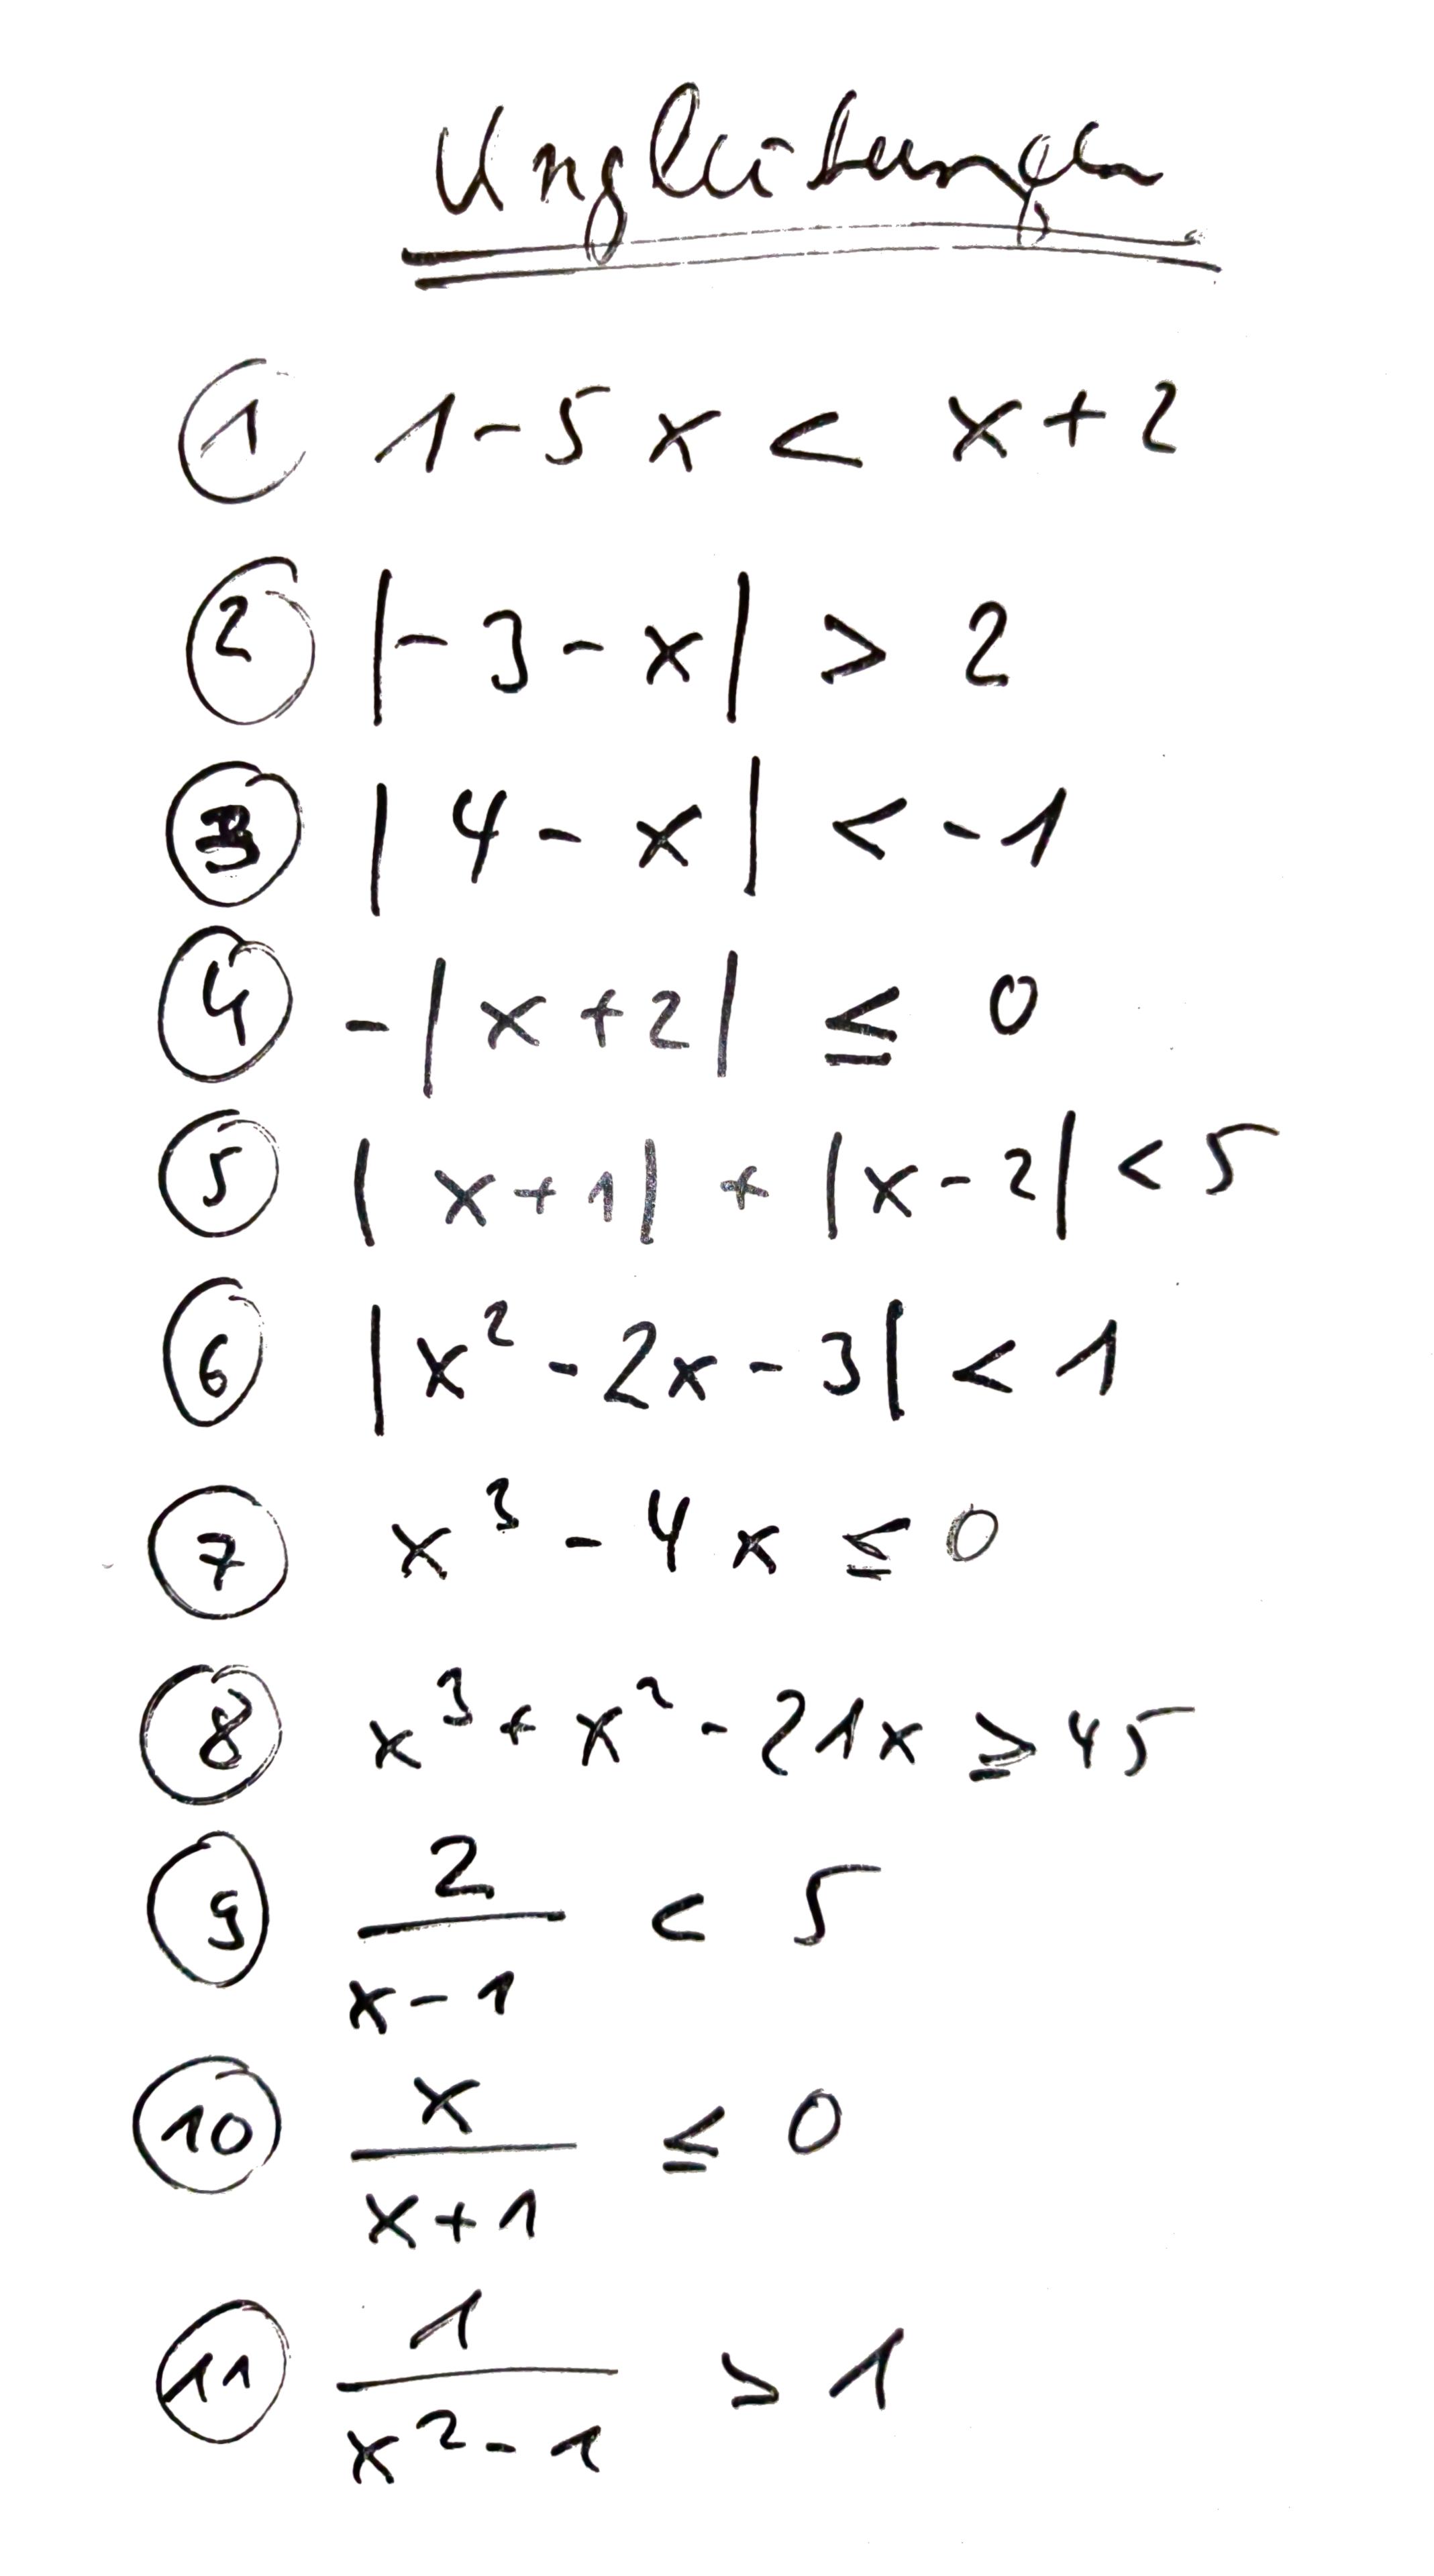 Ungleichungen
① 1 - 5x < x + 2
② |-3 - x| > 2
③ |4 - x| < -1
④ -|x + 2| ≤ 0
⑤ |x + 1| + |x - 2| < 5
⑥ |x² - 2x - 3| < 1
⑦ x³ - 4x ≤ 0
⑧ x³ + x² - 21x ≥ 45
⑨ 2/(x - 1) < 5
⑩ x/(x + 1) ≤ 0
⑪ 1/(x² - 1) > 1